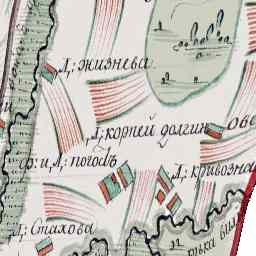 Д: жизнева
Д: корпей долгин
ове
ои
ф: и, Д: погостъ
Д: кривозна
Д: Стахова
рѣка